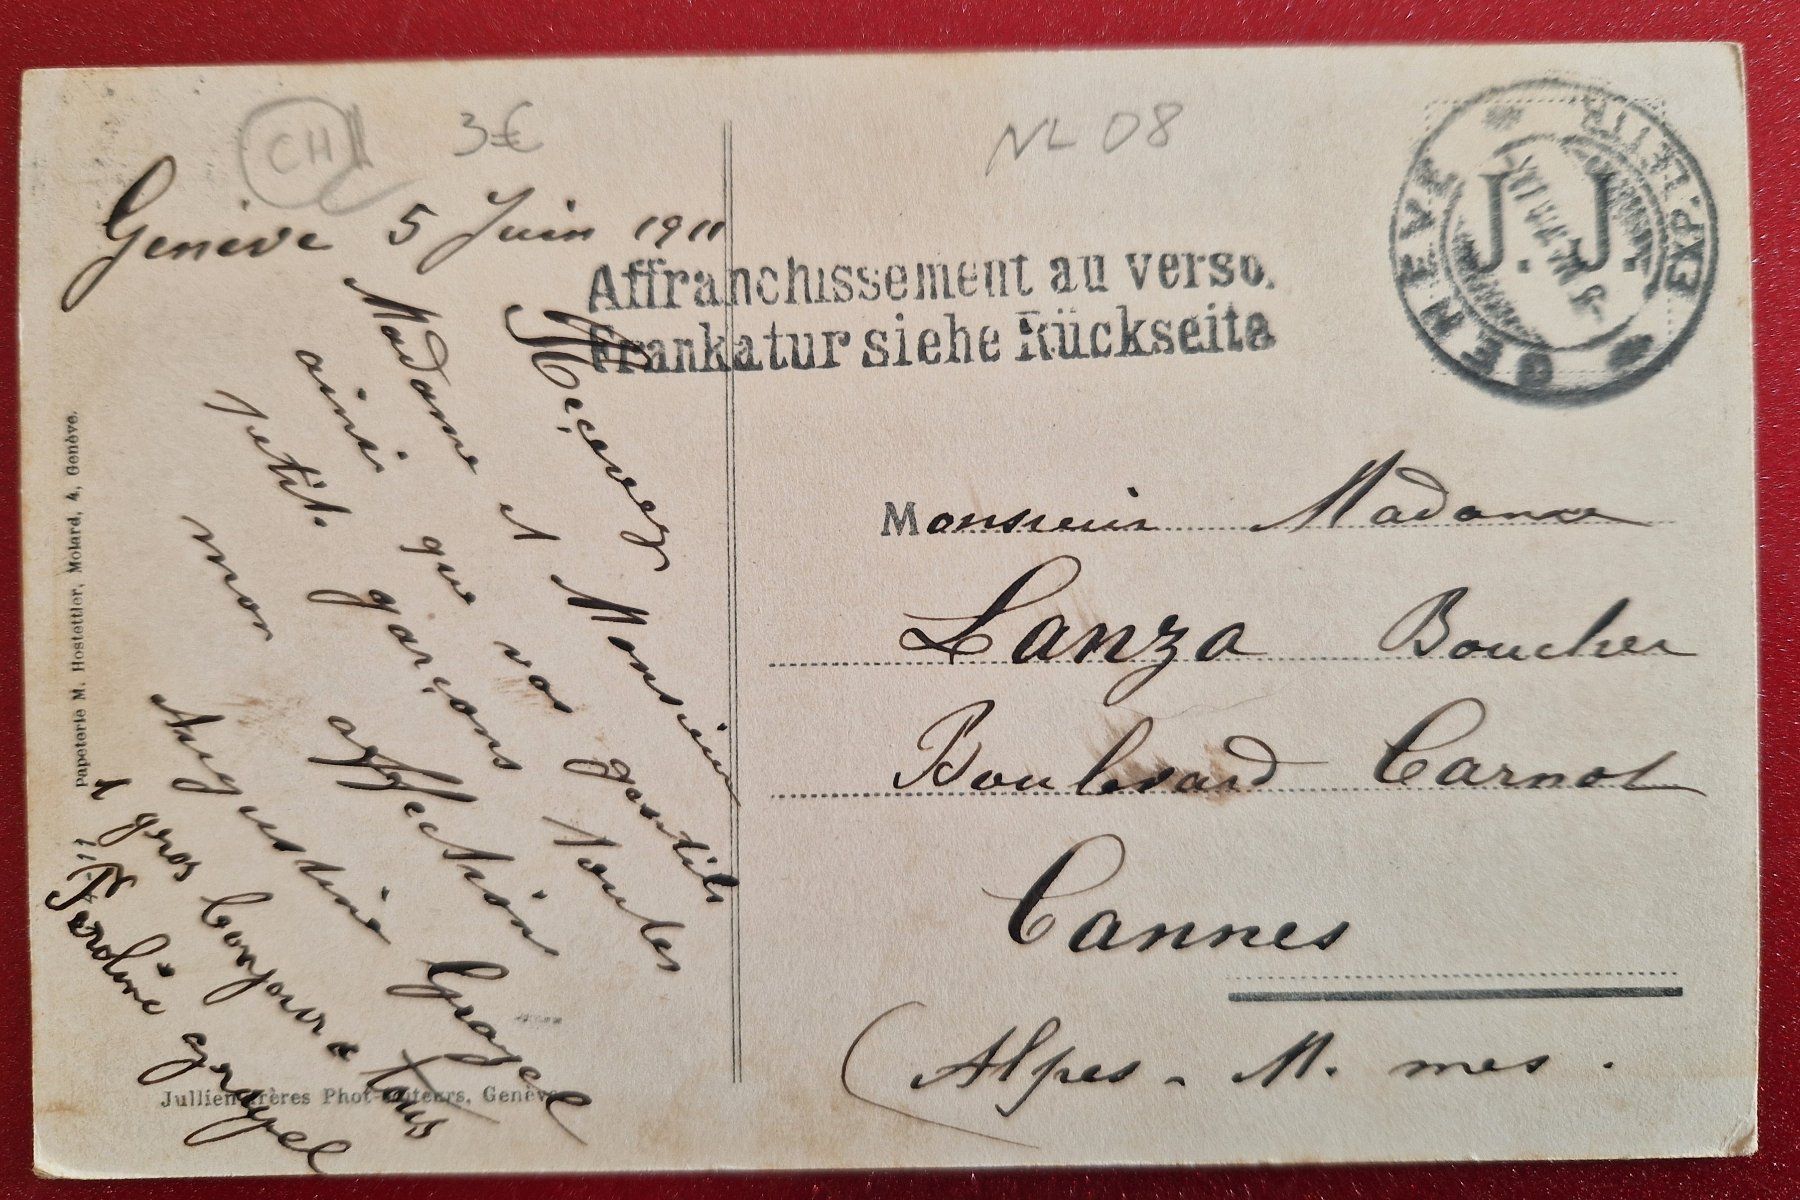 CH
3€
NL 08
Genève 5 Juin 1911
Recevez
Madame et Monsieur
ainsi que vos gentils
petits garçons toutes
mon affection
Augustine Gragel
1 gros bonjour a tous
gragel
Affranchissement au verso.
Frankatur siehe Rückseite
GENÈVE
EXP. LETTR.
J. J.
Monsieur Madame
Lanza Boucher
Boulevard Carnot
Cannes
(Alpes - M. mes.
Papeterie M. Hostettler, Molard, 4, Genève.
Jullien Frères Phot-Editeurs, Genève